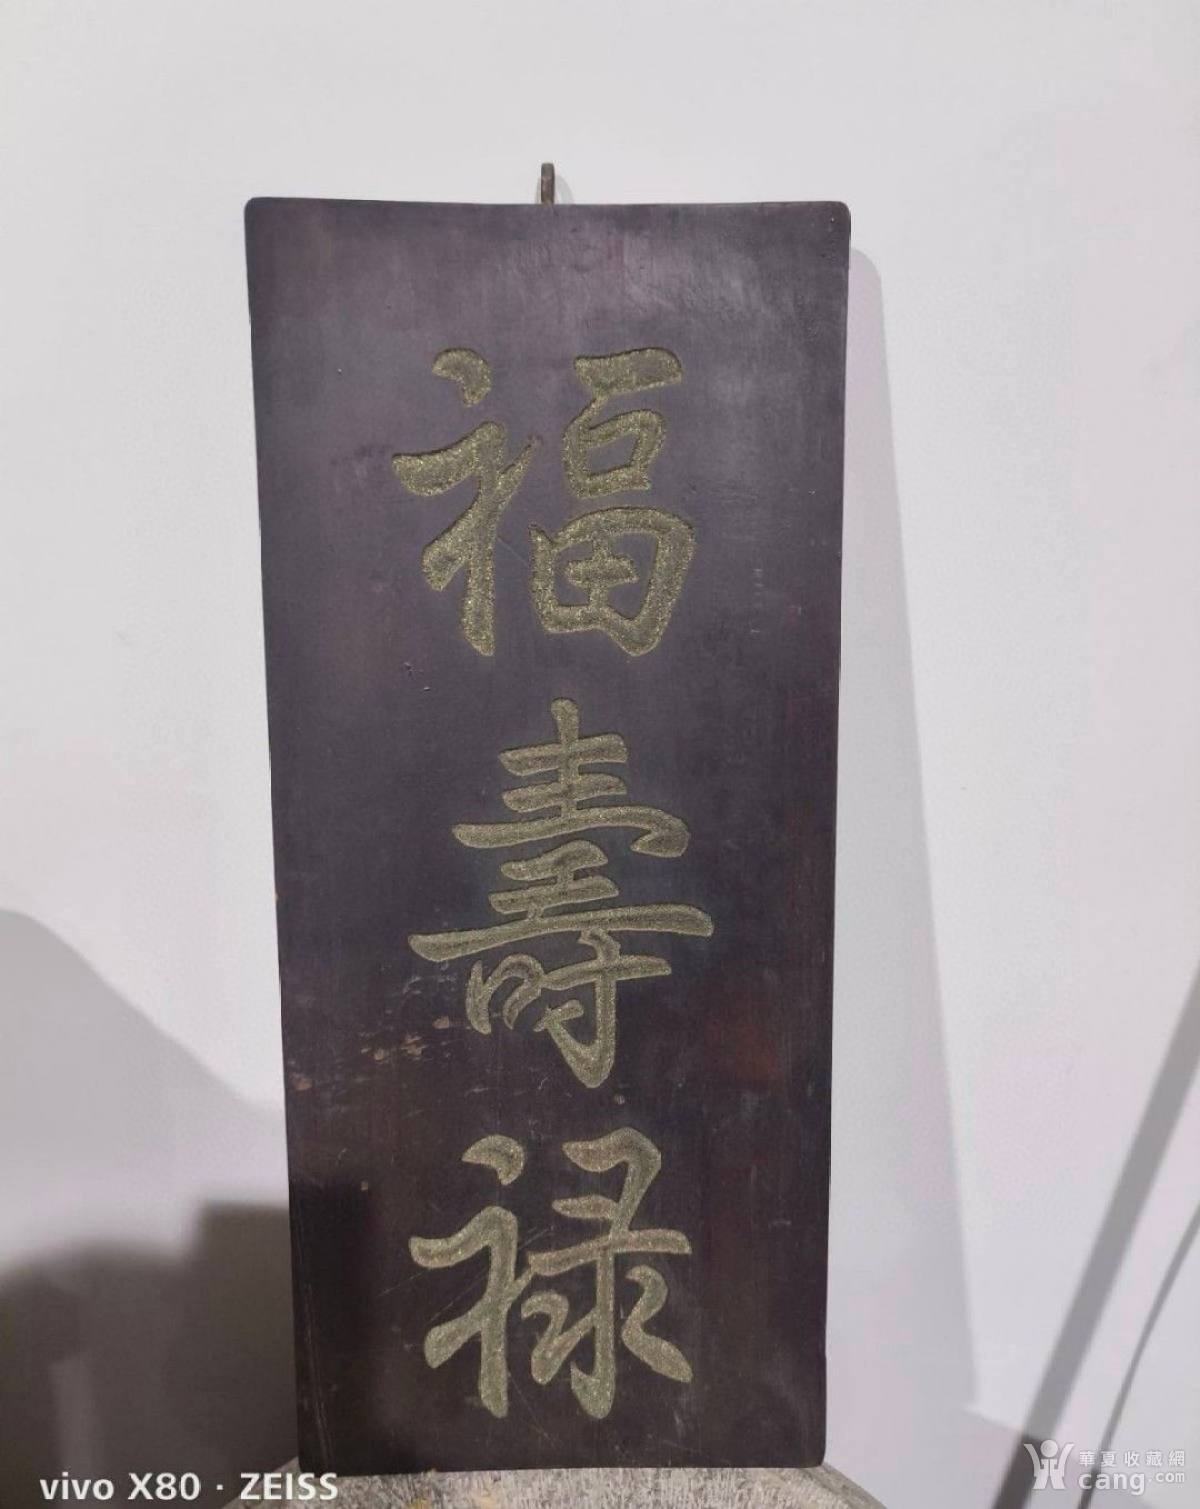 福壽禄
vivo X80 · ZEISS
華夏收藏網
cang.com